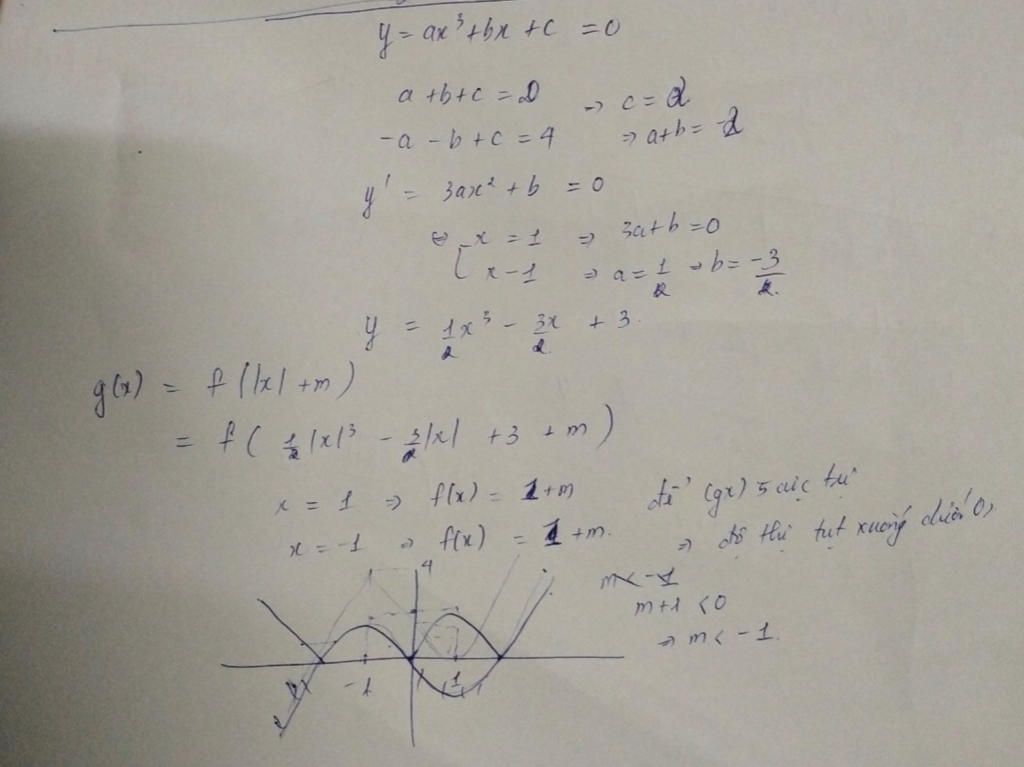 y = ax³ + bx + c = 0
a + b + c = 0 → c = 2
-a - b + c = 4 ⇒ a + b = -2
y' = 3ax² + b = 0
⇔ [ x = 1 ⇒ 3a + b = 0
x - 1 ⇒ a = 1/2 → b = -3/2
y = 1/2 x³ - 3x/2 + 3.
g(x) = f(|x| + m)
= f( 1/2 |x|³ - 3/2 |x| + 3 + m )
x = 1 ⇒ f(x) = 1 + m để (gx) 5 cực trị
x = -1 ⇒ f(x) = 1 + m. ⇒ đồ thị tụt xuống dưới 0x
m < -1
m + 1 < 0
⇒ m < -1.
4
-1 1